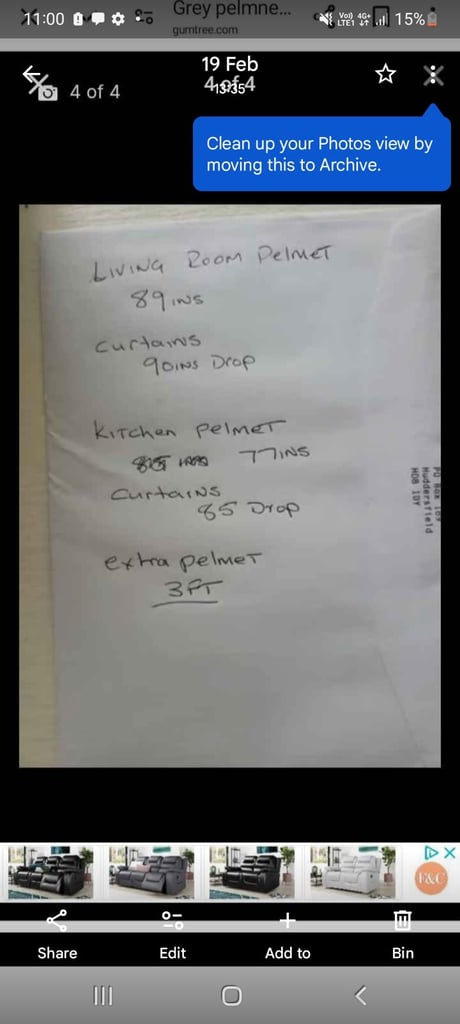 11:00
Grey pelmne...
gumtree.com
Vo)) 4G+
LTE1
15%
19 Feb
13:35
4 of 4
4 of 4
Clean up your Photos view by
moving this to Archive.
LIVING ROOM PelMET
89INS
Curtains
90INS Drop
KITCHen pelMET
77INS
CurtaiNS
85 Drop
extra pelMET
3FT
PO Box 169
Huddersfield
HD8 1DY
F&C
Share
Edit
Add to
Bin